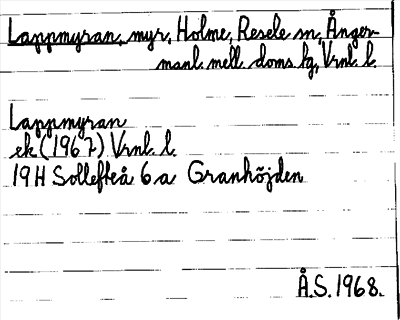 Lappmyran, myr, Holme, Resele sn, Ånger-
manl. mell. doms. fg, Vrnl. l.
Lappmyran
ek (1967) Vrnl. l.
19H Sollefteå 6a Granhöjden
Å.S. 1968.